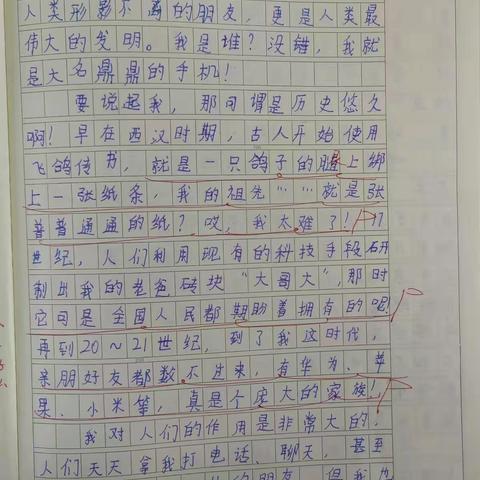 人类形影不离的朋友，更是人类最
伟大的发明。我是谁？没错，我就
是大名鼎鼎的手机！
要说起我，那可谓是历史悠久
啊！早在西汉时期，古人开始使用
飞鸽传书，就是一只鸽子的腿上绑
上一张纸条，我的祖先……就是张
普普通通的纸？哎，我太难了！17
世纪，人们利用现有的科技手段研
制出我的老爸砖块“大哥大”，那时
它可是全国人民都期盼着拥有的呢！
再到20～21世纪，到了我这时代，
亲朋好友都数不过来，有华为、苹
果、小米等，真是个庞大的家族！
我对人们的作用是非常大的，
人们天天拿我打电话、聊天，甚至
的朋友，但我也